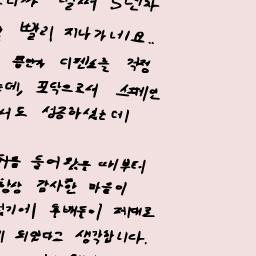 벌써 5년차
빨리 지나가네요..
디펜스를 걱정
는데, 포닥으로서 스페인
서도 성공하셨는데
처음 들어왔을 때부터
항상 감사한 마음이
었기에 후배들이 제대로
게 되었다고 생각합니다.